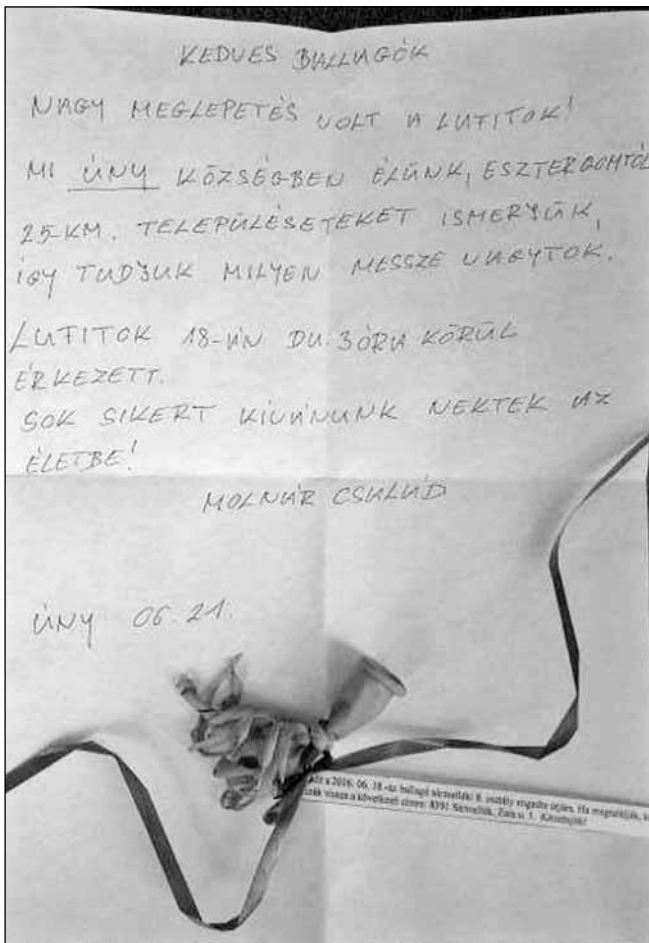 KEDVES BALLAGÓK
NAGY MEGLEPETÉS VOLT A LUFITOK!
MI ÚNY KÖZSÉGBEN ÉLÜNK, ESZTERGOMTÓL
25 KM. TELEPÜLÉSETEKET ISMERJÜK,
ÍGY TUDJUK MILYEN MESSZE VAGYTOK.
LUFITOK 18-ÁN DU. 3 ÓRA KÖRÜL
ÉRKEZETT.
SOK SIKERT KÍVÁNUNK NEKTEK AZ
ÉLETBE!
MOLNÁR CSALÁD
ÚNY 06.21.
a 2016. 06. 18.-án ballagó sármelléki 8. osztály engedte útjára. Ha megtalálják,
vissza a következő címre: 8391 Sármellék, 1. Köszönjük!